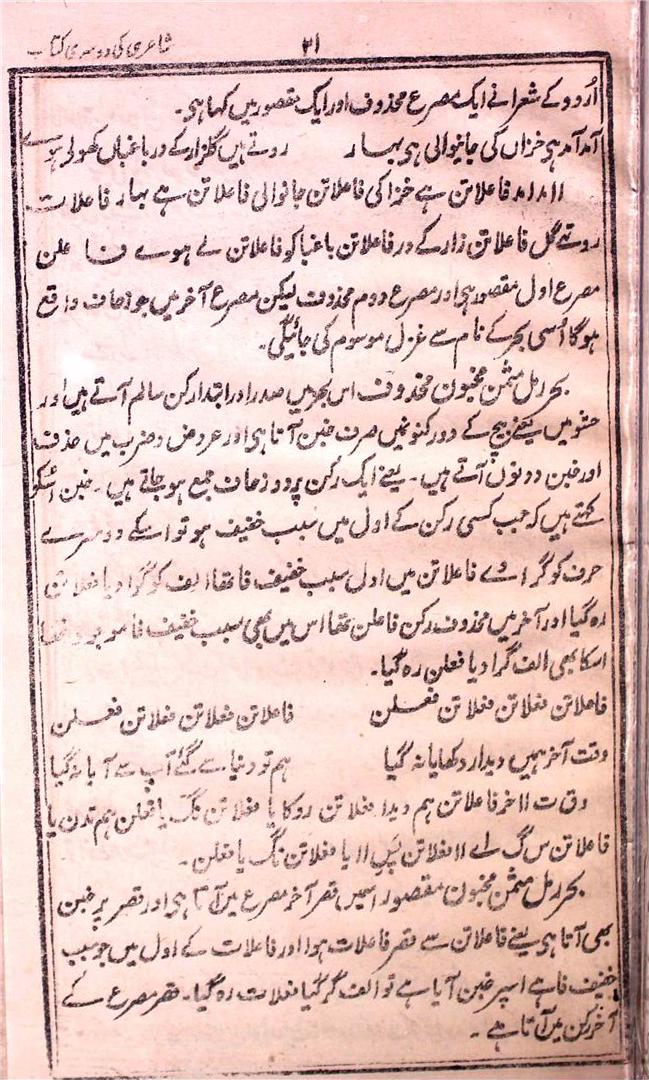 شاعری کی دوسری کتاب
۳۱
اُردو کے شعرا نے ایک مصرع محذوف اور ایک مقصور میں کہا ہی۔
آمد آمد ہی خزاں کی جانیوالی ہی بہار روتے ہیں گلزار کے در باغباں کھولے ہوے
اا مد اا مد فاعلاتن ہے خزا کی فاعلاتن جانوالی فاعلاتن ہے بہار فاعلات
روتے گل فاعلاتن زار کے در فاعلاتن باغبا کو فاعلاتن لے ہوے فاعلن
مصرع اول مقصور ہی اور مصرع دوم محذوف لیکن مصرع آخر میں جو زحاف واقع
ہوگا اُسی بحر کے نام سے غزل موسوم کی جائیگی۔
بحر رمل مثمن مخبون محذوف اس بحر میں صدر اور ابتدا رکن سالم آتے ہیں اور
حشو میں یعنے بیچ کے دو رکنو نمیں صرف خبن آتا ہی اور عروض و ضرب میں حذف
اور خبن دونوں آتے ہیں۔ یعنے ایک رُکن پر دو زحاف جمع ہو جاتے ہیں۔ خبن اُسکو
کہتے ہیں کہ جب کسی رکن کے اول میں سبب خفیف ہو تو اسکے دوسرے
حرف کو گرا دے فاعلاتن میں اول سبب خفیف فا تھا الف کو گرا دیا فعلاتن
رہ گیا اور آخر میں محذوف رکن فاعلن تھا اس میں بھی سبب خفیف فا موجود تھا
اسکا بھی الف گرا دیا فعلن رہ گیا۔
فاعلاتن فعلاتن فعلاتن فعلن فاعلاتن فعلاتن فعلاتن فعلن
وقت آخر ہمیں دیدار دکھایا نہ گیا ہم تو دنیا سے گئے آپ سے آیا نہ گیا
وق ت ااخر فاعلاتن ہم دیدا فعلاتن رو کا یا فعلاتن نگ یا فعلن ہم تدن یا
فاعلاتن س گ لے اا فعلاتن پس اا یا فعلاتن نگ یا فعلن۔
بحر رمل مثمن مخبون مقصور اسمیں قصر آخر مصرع میں آتا ہی اور قصر پر خبن
بھی آتا ہی یعنے فاعلاتن سے قصر فاعلات ہوا اور فاعلات کے اول میں جو سبب
خفیف فا ہے اسپر خبن آیا ہے تو الف گر گیا فعلات رہ گیا۔ قصر مصرع کے
آخر رُکن میں آتا ہے۔